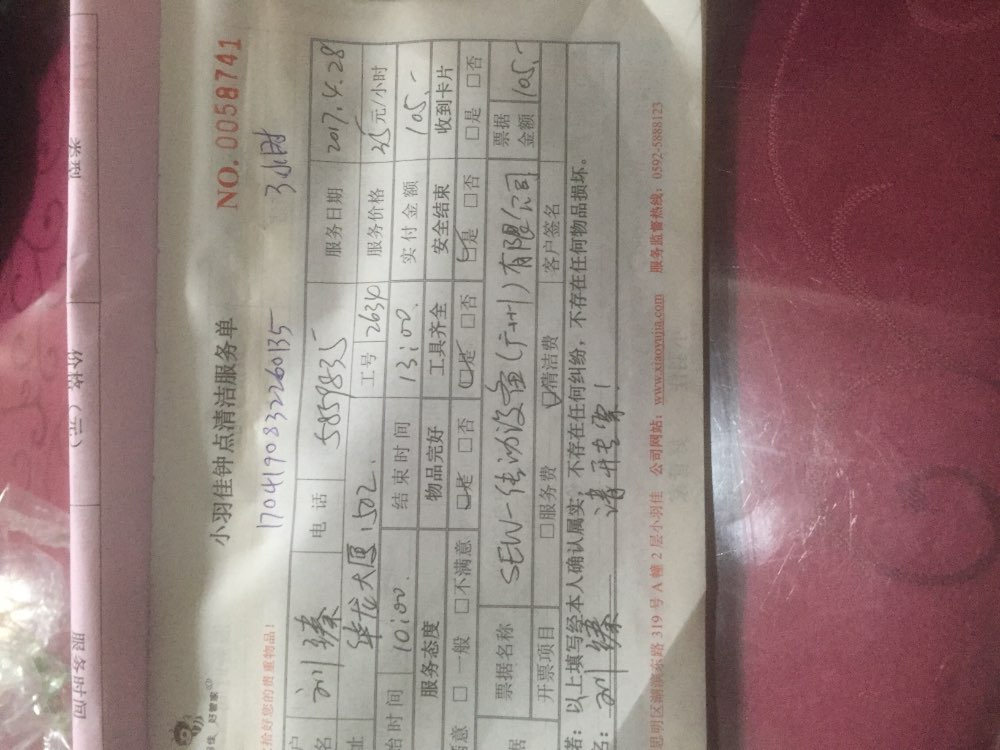 类型
价格（元）
服务时间
小羽佳钟点清洁服务单
NO. 0058741
好管家
17041908322260135 3小时
拾好您的贵重物品！
户
名
刘
电话
5859835
服务日期
2017.4.28
址
华龙大厦1502.
工号
2634
服务价格
35元/小时
始时间
10:00.
结束时间
13:00.
实付金额
105.-
服务态度
物品完好
工具齐全
安全结束
收到卡片
意 □ 一般 □ 不满意
□是 □否
□是 □否
□是 □否
□是 □否
据
票据名称
SEW-传动设备(广州)有限公司
票据
金额
105.-
开票项目
□服务费
□清洁费
客户签名
若：以上填写经本人确认属实，不存在任何纠纷，不存在任何物品损坏。
名：刘
请开专票！
思明区湖滨东路 319 号 A 幢 2 层小羽佳 公司网站：www.xiaoyujia.com 服务监督热线：0592-5888123